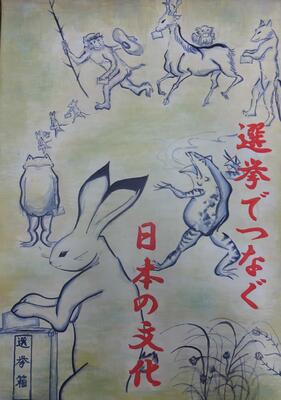 選挙でつなぐ
日本の文化
選挙箱